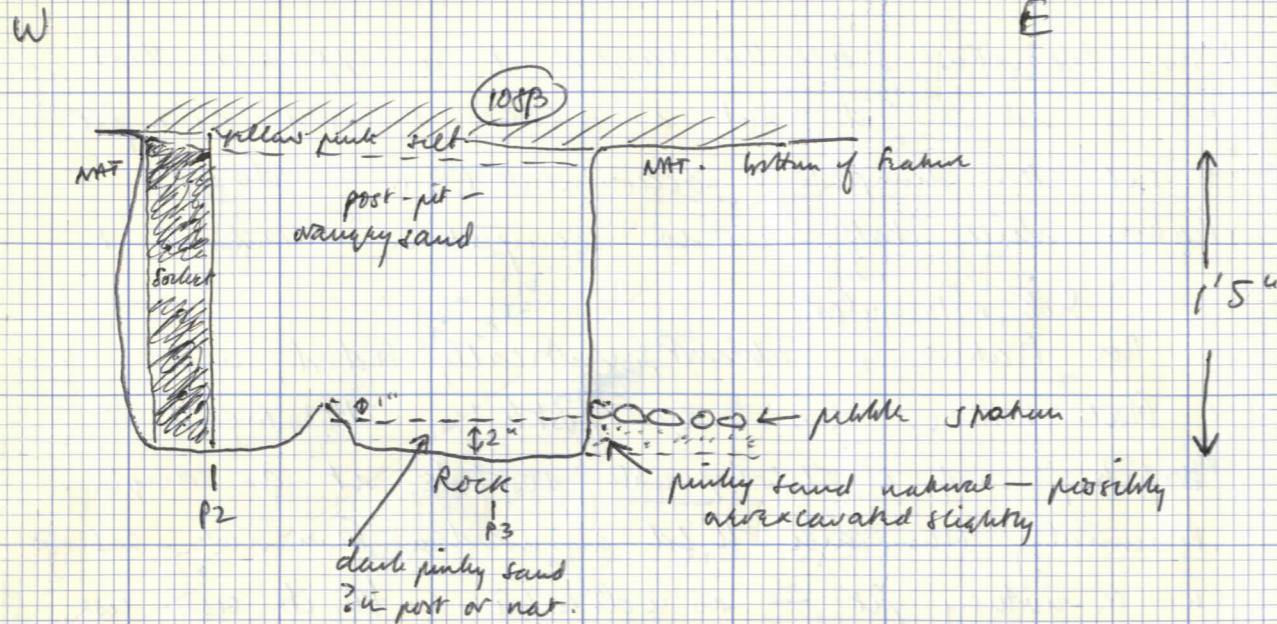 W
E
108B
yellow pink silt
NAT
NAT. bottom of feature
post-pit -
orangey sand
Socket
1'5"
1"
pebble stratum
2"
ROCK
pinky sand natural - possibly
overexcavated slightly
P2
P3
dark pinky sand
? in post or nat.